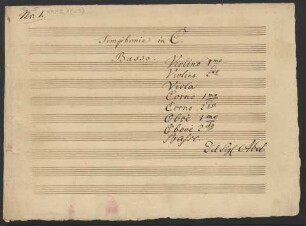 No. 1.
Simphonia in C
Basso
Violino 1mo
Violino 2do
Viola
Corno 1mo
Corno 2do
Oboe 1mo
Oboe 2do
Basso.
Del Sigl Abel.